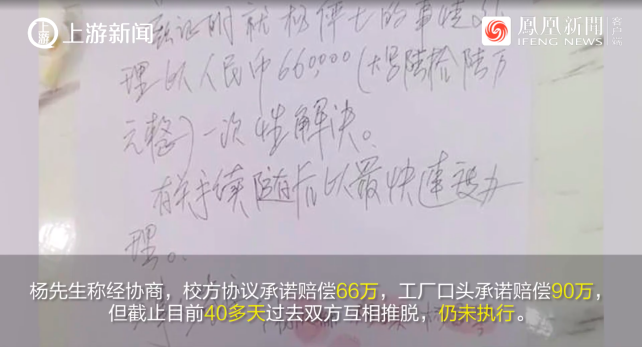 上游新闻
鳳凰新聞
客户端
IFENG NEWS
兹证明就杨博士的事情处
理以人民币660000(大写陆拾陆万
元整)一次性解决。
有关手续随后以最快速度办
理。
杨先生称经协商，校方协议承诺赔偿66万，工厂口头承诺赔偿90万，
但截止目前40多天过去双方互相推脱，仍未执行。